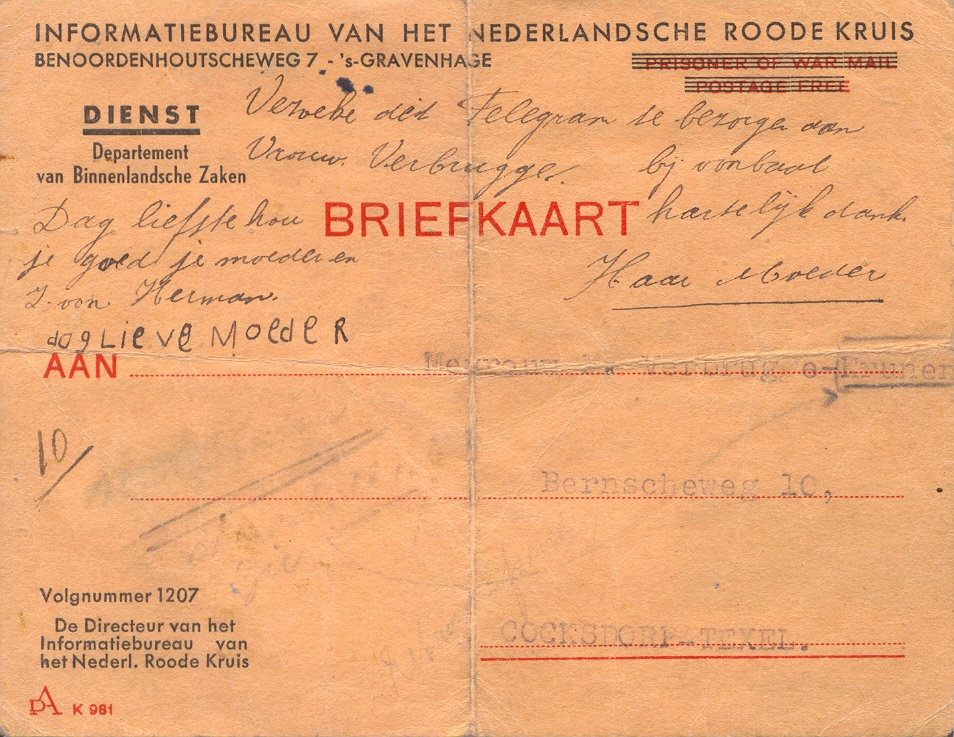 INFORMATIEBUREAU VAN HET NEDERLANDSCHE ROODE KRUIS
BENOORDENHOUTSCHEWEG 7 - 's-GRAVENHAGE
PRISONER OF WAR MAIL
POSTAGE FREE
DIENST
Departement
van Binnenlandsche Zaken
dit Telegram te bezorgen aan
Vrouw. Verbrugge. bij voorbaat
hartelijk dank.
Haar Moeder
Dag liefste hou
je goed je moeder en
Z. oon Herman.
dag LIEVE MOEdER
BRIEFKAART
AAN Mevrouw Verbrugge-
10/
Bernscheweg 10,
COCKSDORP-TEXEL.
Volgnummer 1207
De Directeur van het
Informatiebureau van
het Nederl. Roode Kruis
K 981